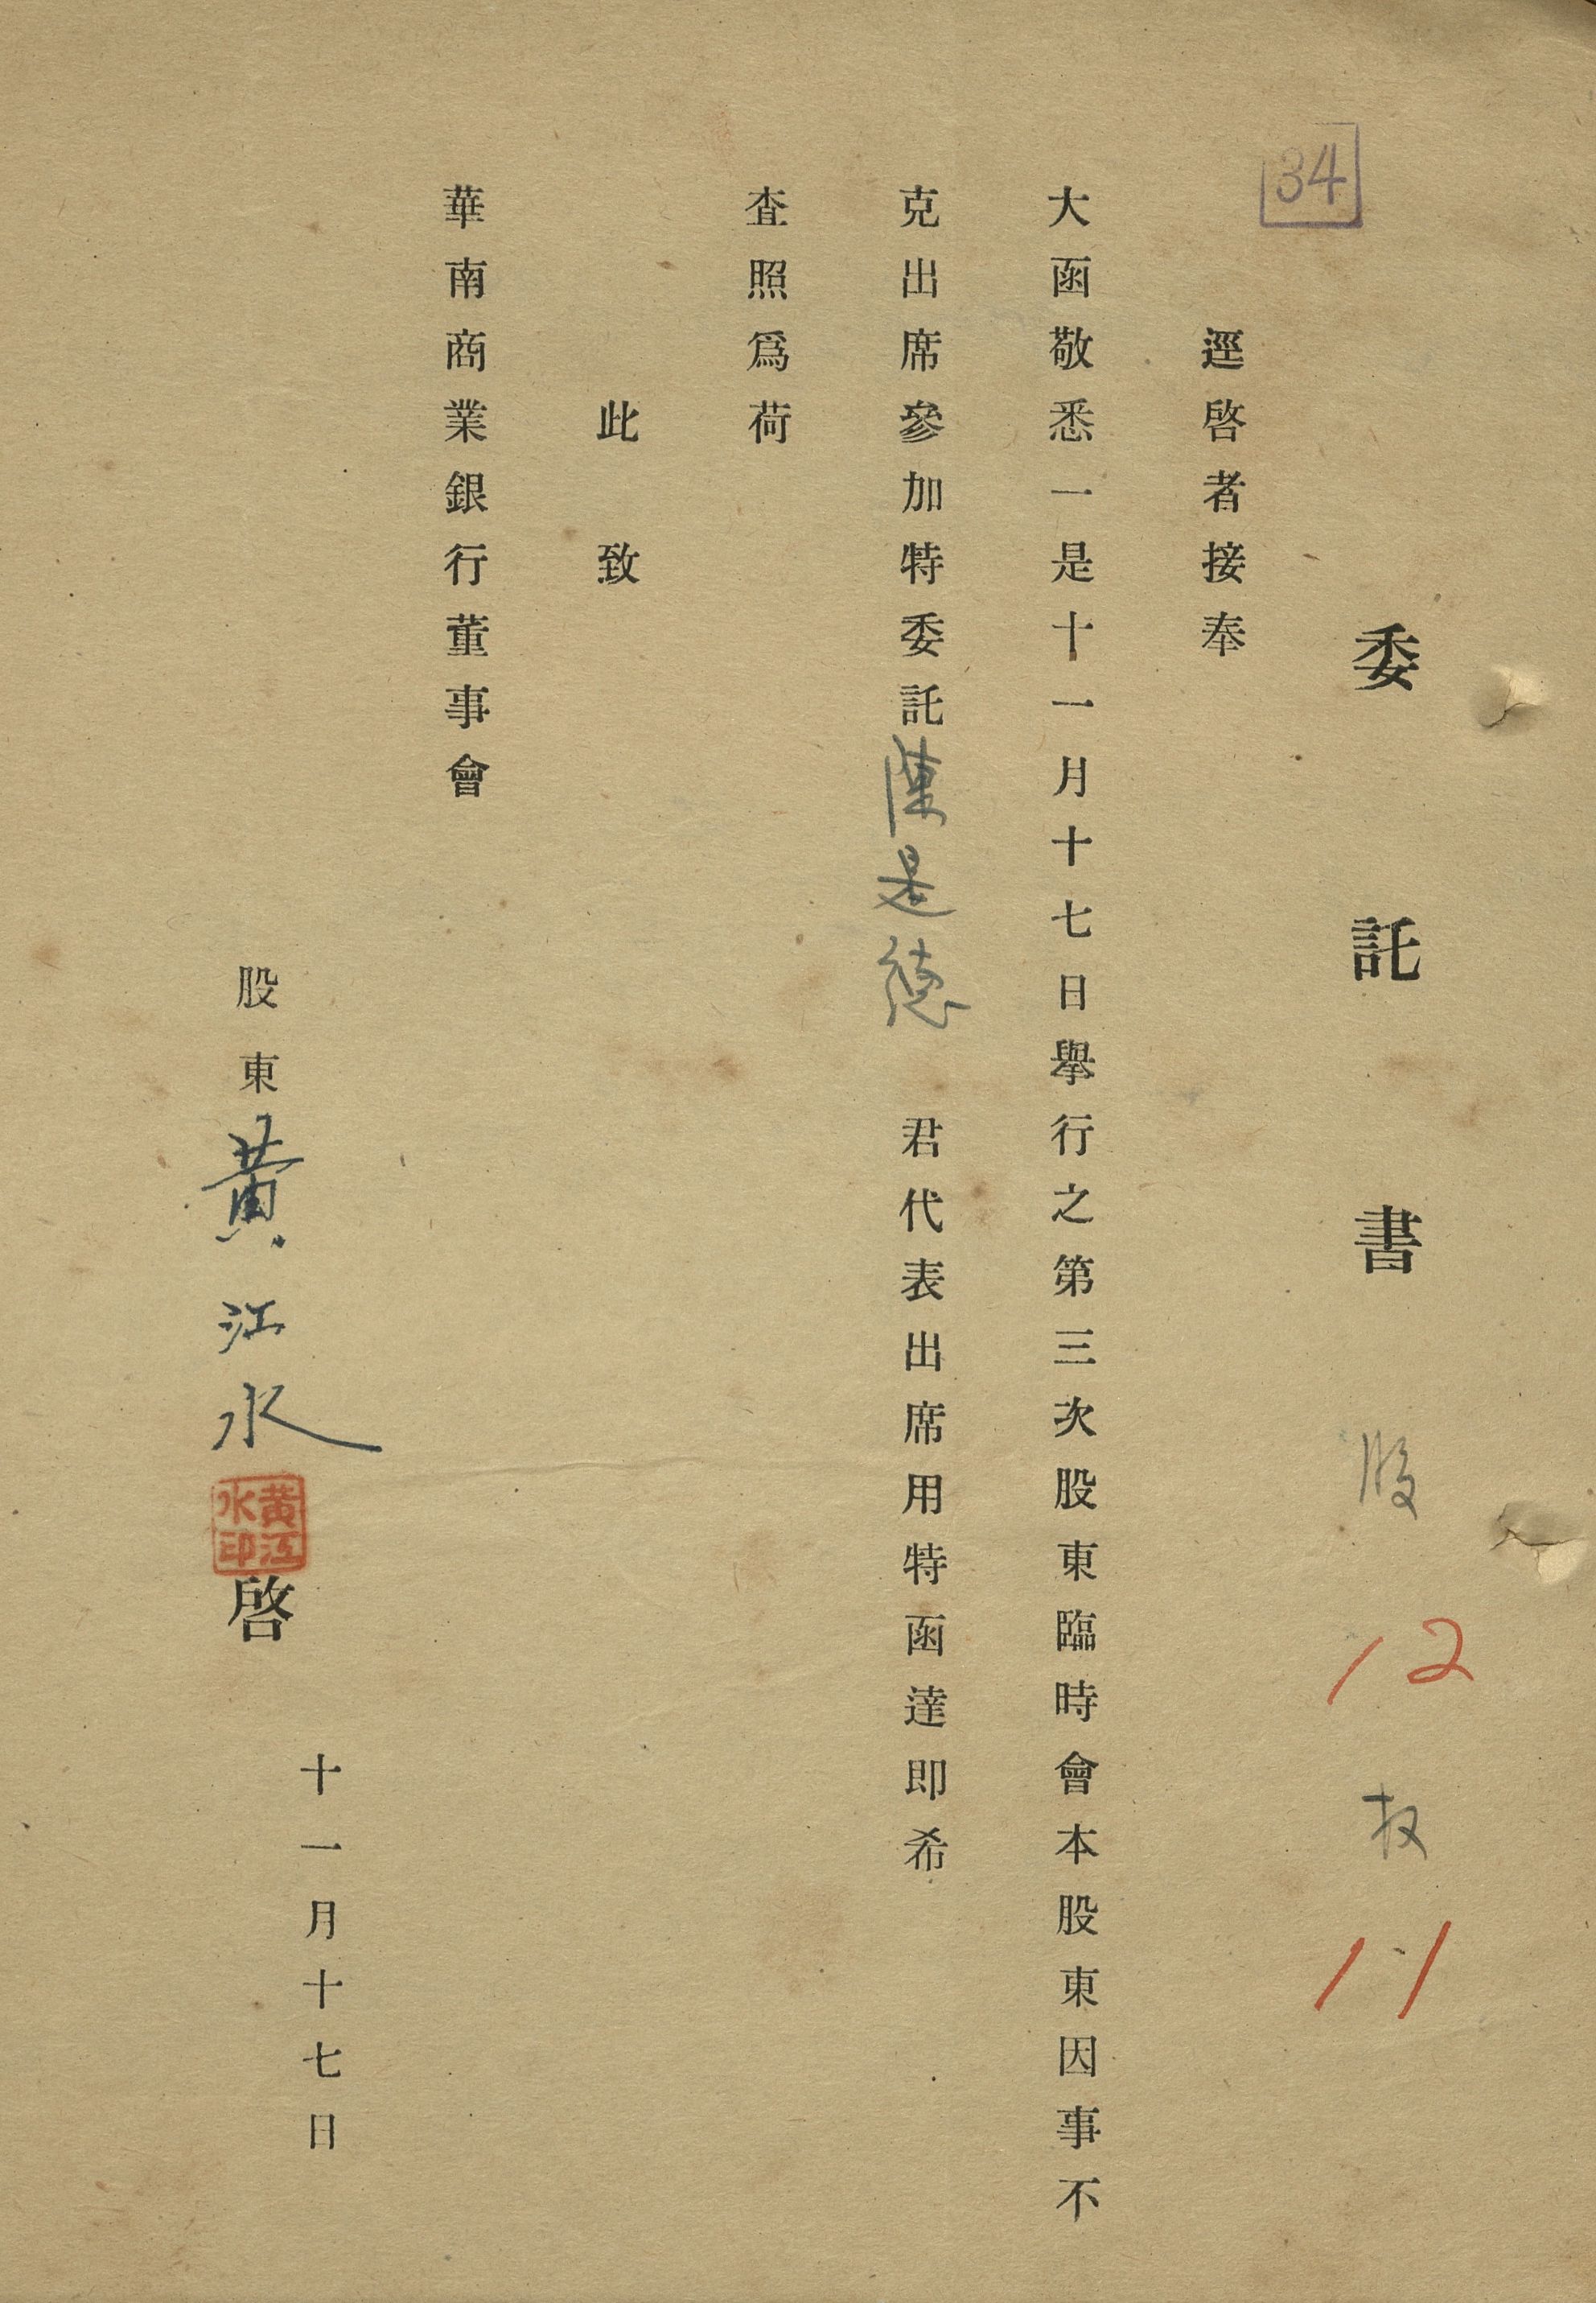 34
委託書 股 12 权 11
逕啓者接奉
大函敬悉一是十一月十七日舉行之第三次股東臨時會本股東因事不
克出席參加特委託陳是德 君代表出席用特函達即希
查照爲荷
此致
華南商業銀行董事會
十一月十七日
股東黄江水啓
黄江水印